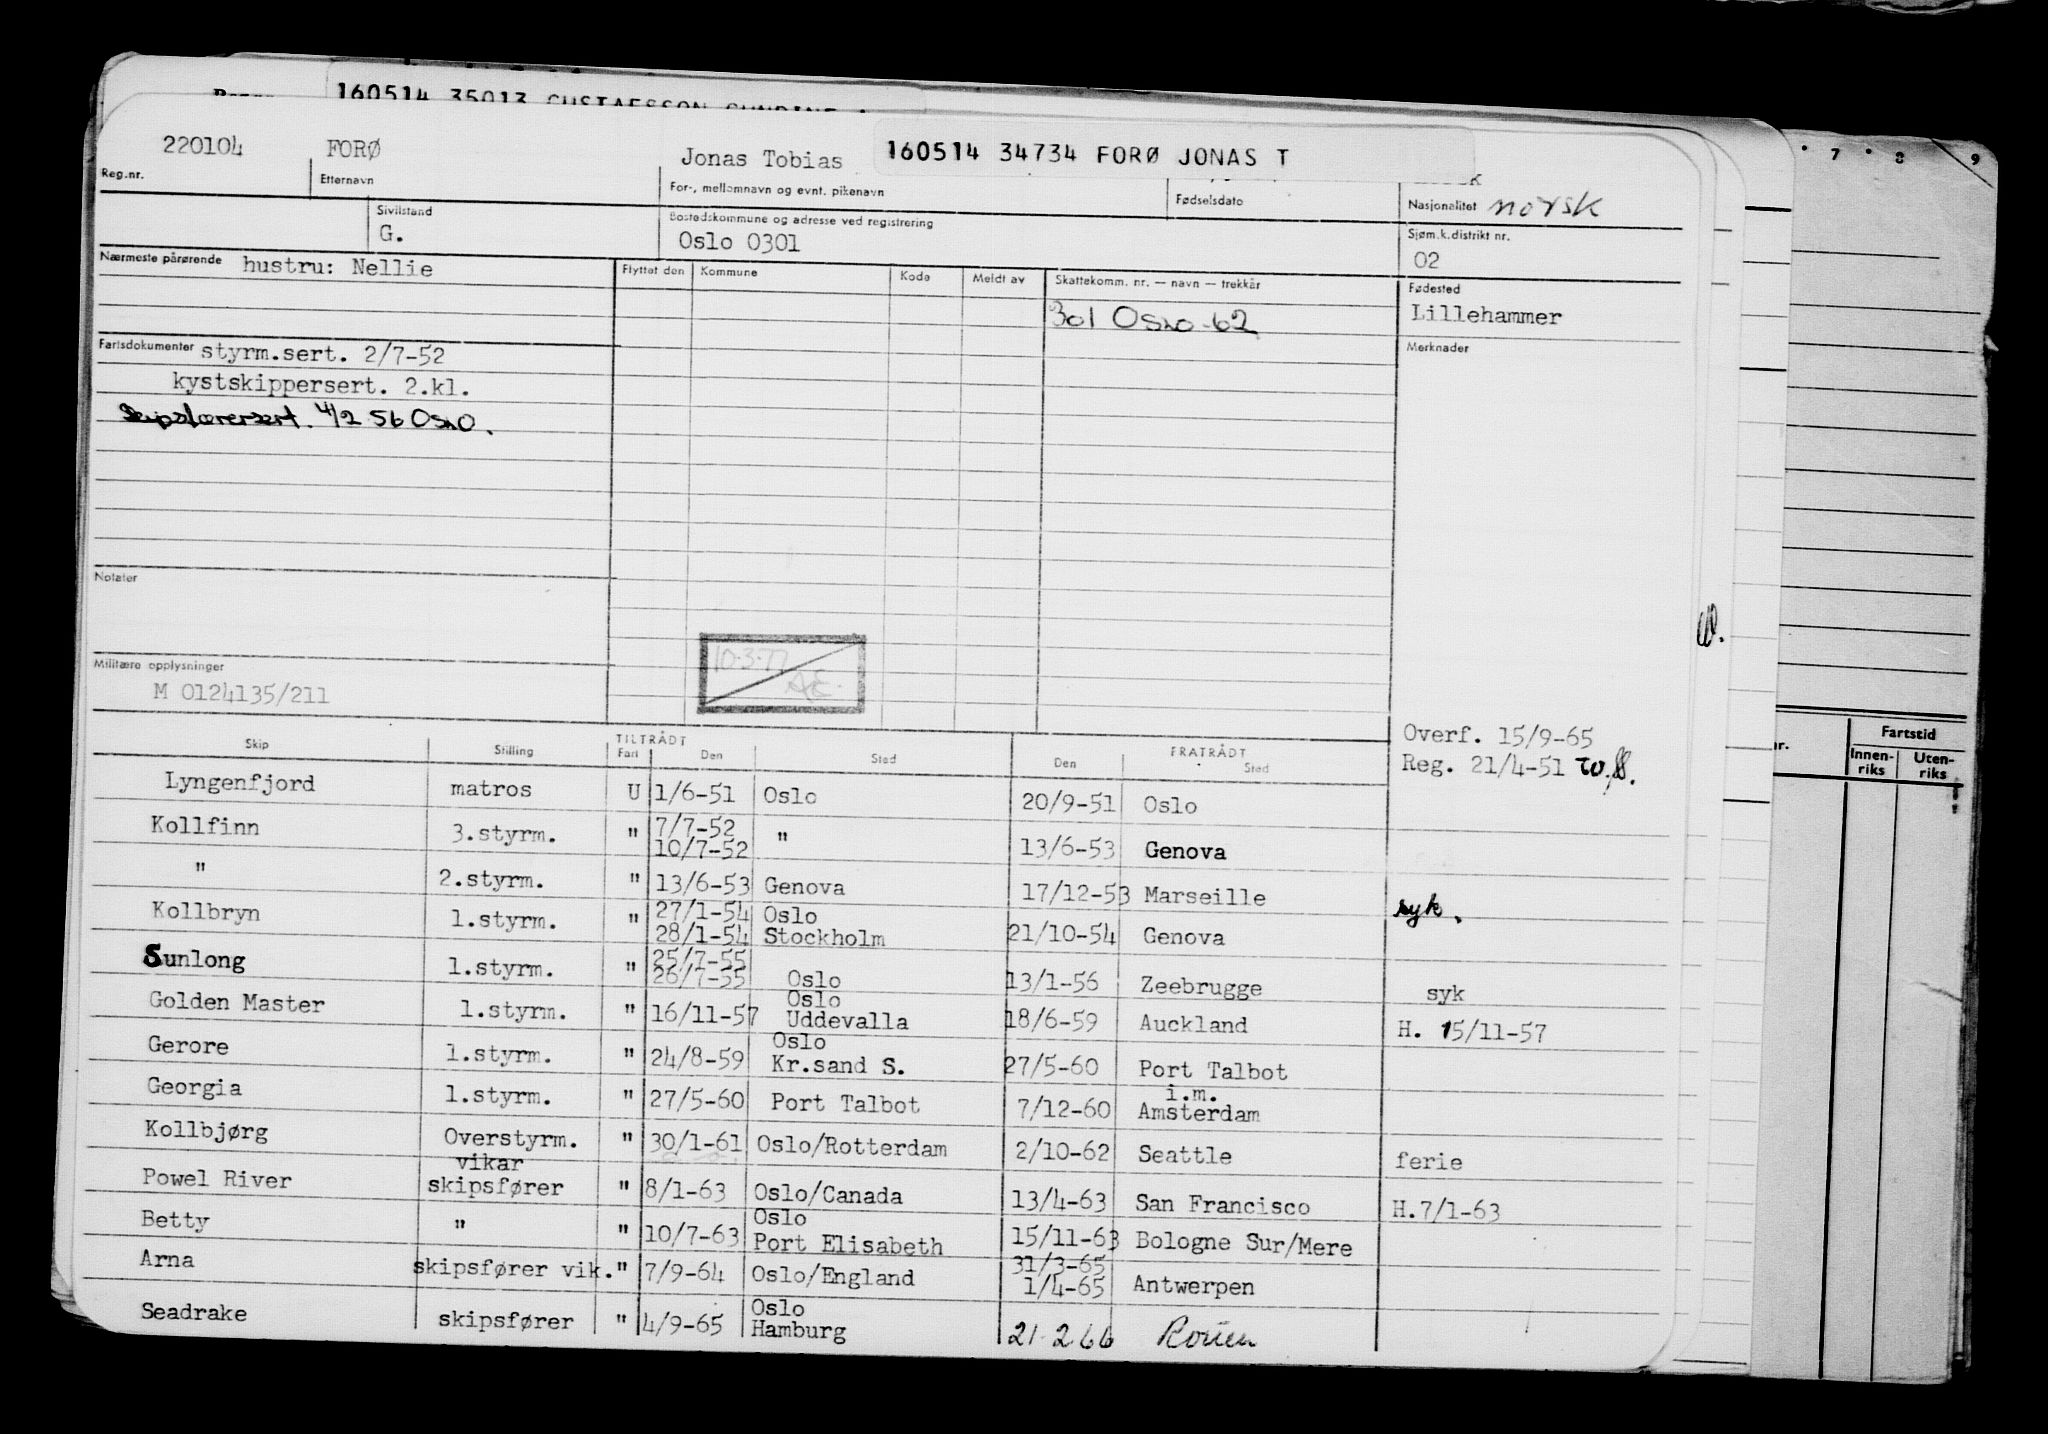 160514 35013 GUSTAFSSON
220104 FORØ Jonas Tobias 160514 34734 FORØ JONAS T
Reg.nr. Etternavn For-, mellomnavn og evnt. pikenavn Fødselsdato Nasjonalitet norsk
Sivilstand Bostedskommune og adresse ved registrering Sjøm.k.distrikt nr.
G. Oslo 0301 02
Nærmeste pårørende hustru: Nellie Flyttet den Kommune Kode Meldt av Skattekomm. nr. — navn — trekkår Fødested
301 Oslo -62 Lillehammer
Fartsdokumenter styrm.sert. 2/7-52 Merknader
kystskippersert. 2.kl.
4/2 56 Oslo.
Notater
10.3.77
Militære opplysninger
M 0124135/211
Overf. 15/9-65
Reg. 21/4-51
Skip Stilling TILTRÅDT Fart Den Sted FRATRÅDT Den Sted
Lyngenfjord matros U 1/6-51 Oslo 20/9-51 Oslo
Kollfinn 3.styrm. " 7/7-52 10/7-52 " 13/6-53 Genova
" 2.styrm. " 13/6-53 Genova 17/12-53 Marseille syk.
Kollbryn 1.styrm. " 27/1-54 Oslo 28/1-54 Stockholm 21/10-54 Genova
Sunlong 1.styrm. " 25/7-55 26/7-55 Oslo 13/1-56 Zeebrugge syk
Golden Master 1.styrm. " 16/11-57 Oslo Uddevalla 18/6-59 Auckland H. 15/11-57
Gerore 1.styrm. " 24/8-59 Oslo Kr.sand S. 27/5-60 Port Talbot
Georgia 1.styrm. " 27/5-60 Port Talbot 7/12-60 i.m. Amsterdam
Kollbjørg Overstyrm. " 30/1-61 Oslo/Rotterdam 2/10-62 Seattle ferie
Powel River vikar skipsfører " 8/1-63 Oslo/Canada 13/4-63 San Francisco H.7/1-63
Betty " " 10/7-63 Oslo Port Elisabeth 15/11-63 Bologne Sur/Mere
Arna skipsfører vik. " 7/9-64 Oslo/England 31/3-65 1/4-65 Antwerpen
Seadrake skipsfører " 4/9-65 Oslo Hamburg 21.2.66 Rouen
7 8 9
Fartstid
Innenriks Utenriks